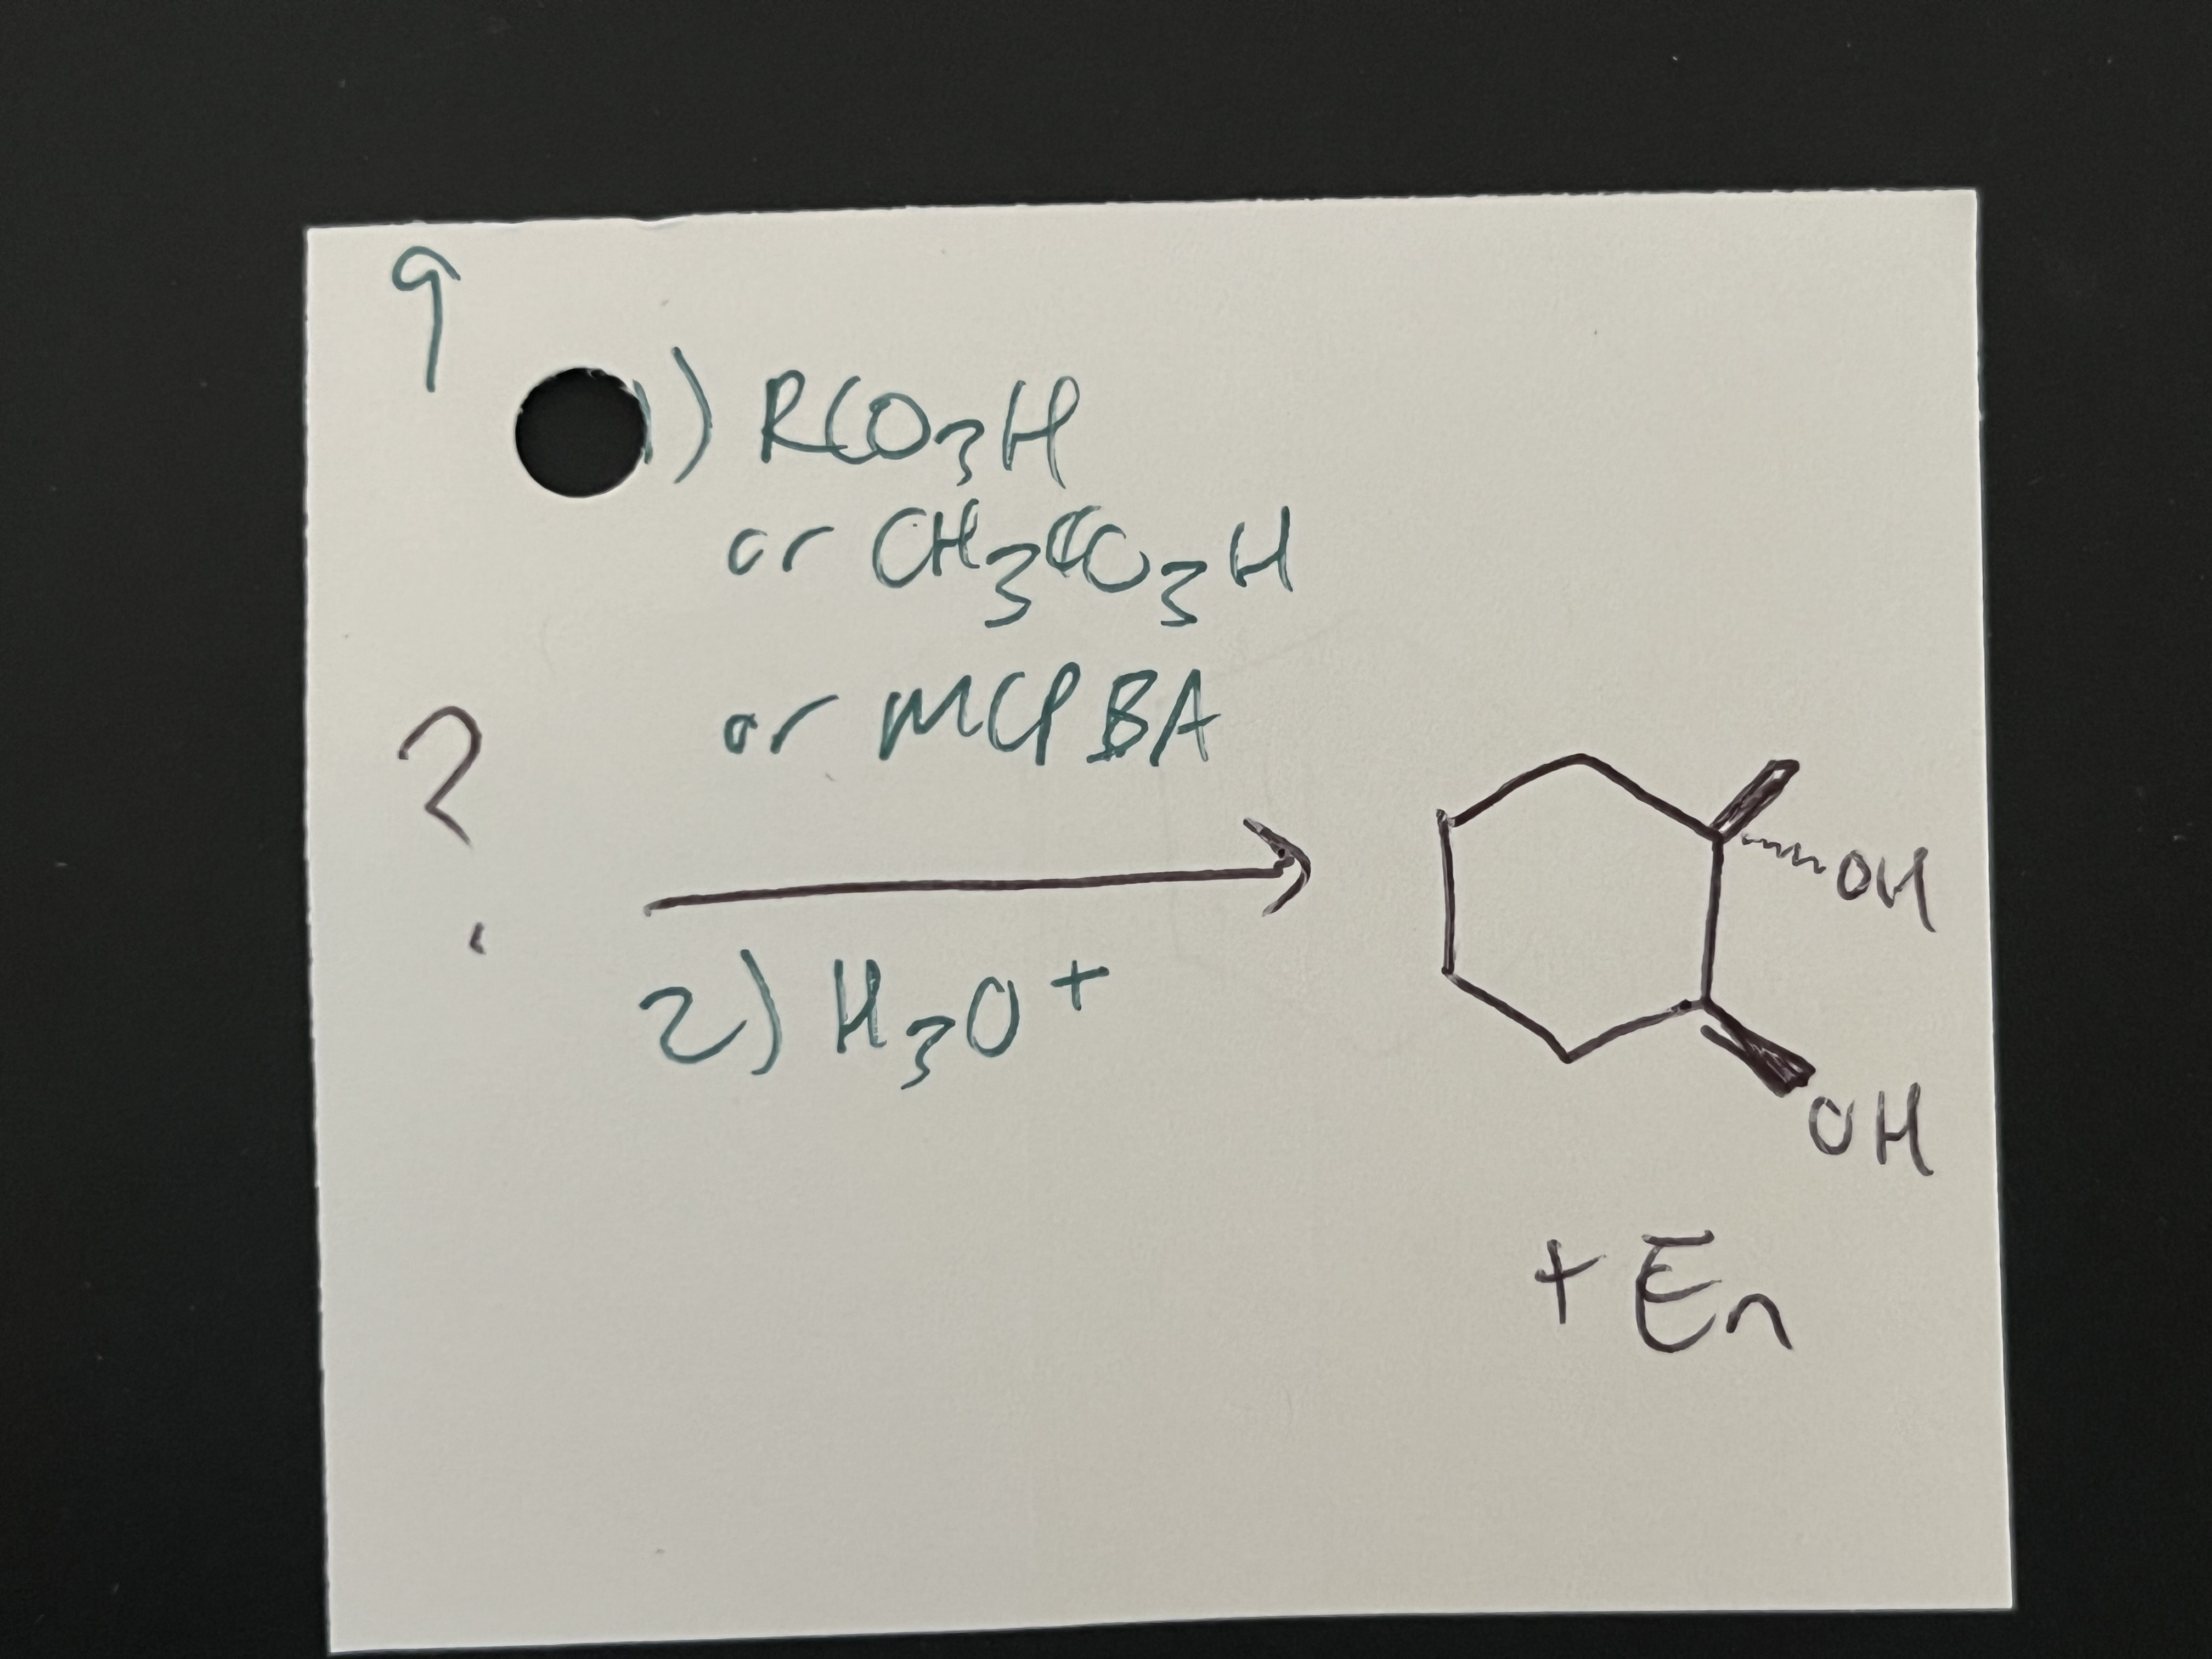 9
1) RCO3H
or CH3CO3H
or MCPBA
?
2) H3O+
OH
OH
+ En